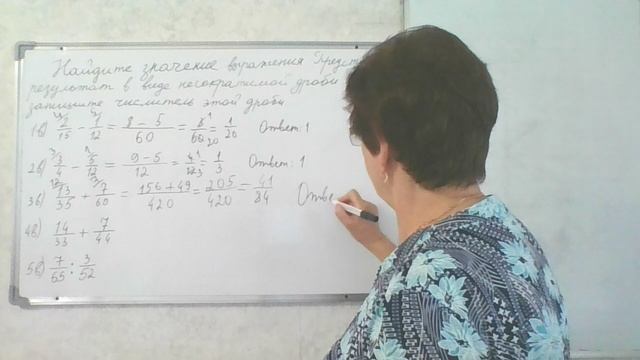 Найдите значение выражения Предст
результат в виде несократимой дроби
запишите числитель этой дроби
1в) 2/15 - 1/12 = 8 - 5/60 = 3/60 = 1/20 Ответ: 1
2в) 3/4 - 5/12 = 9 - 5/12 = 4/12 = 1/3 Ответ: 1
3в) 13/35 + 7/60 = 156 + 49/420 = 205/420 = 41/84 Отве
4в) 14/33 + 7/44
5в) 7/65 : 3/52